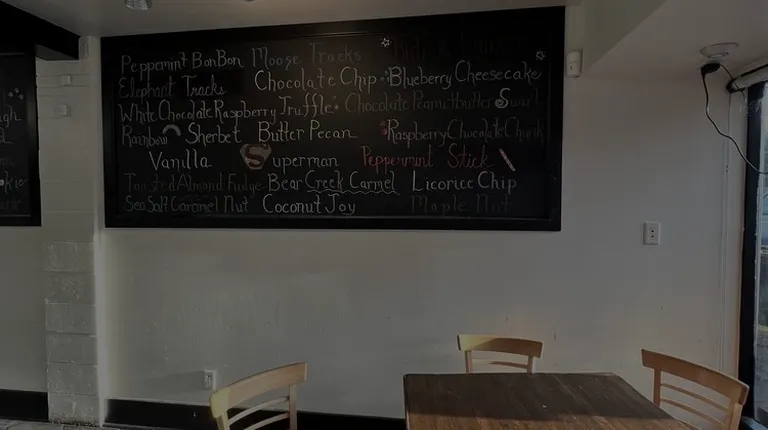 Peppermint BonBon Moose Tracks
Elephant Tracks Chocolate Chip Blueberry Cheesecake
White Chocolate Raspberry Truffle Chocolate Peanutbutter Swirl
Rainbow Sherbet Butter Pecan Raspberry Chocolate Chunk
Vanilla Superman Peppermint Stick
Toasted Almond Fudge Bear Creek Carmel Licorice Chip
Sea Salt Caramel Nut Coconut Joy Maple Nut